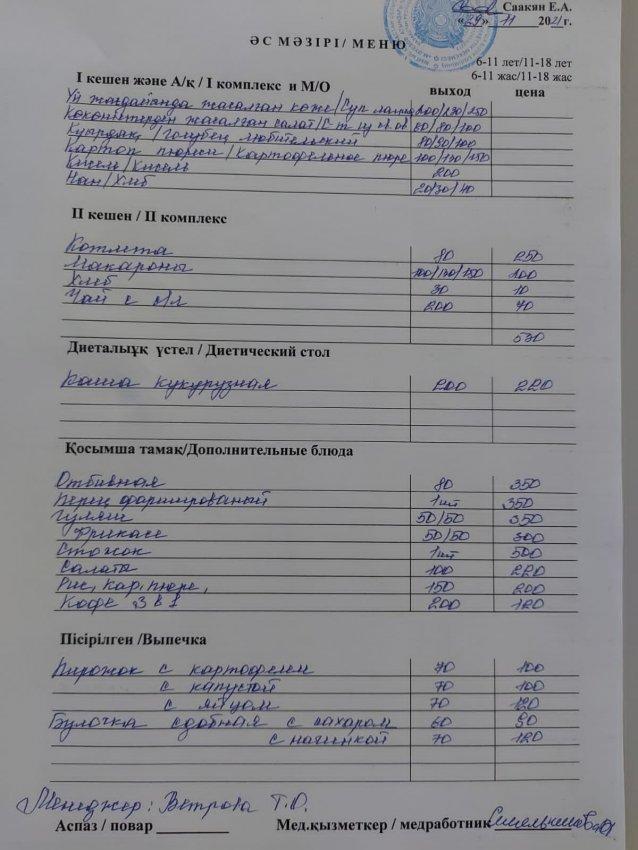 Саакян Е.А.
«29» 11 2021г.
ӘС МӘЗІРІ/ МЕНЮ
6-11 лет/11-18 лет
6-11 жас/11-18 жас
I кешен және А/қ / I комплекс и М/О выход цена
Үй жағдайында жасалған көже/Суп 200/230/250
Көкөністерден жасалған салат/ 60/80/100
Қуырдақ/Голубец любительский 80/90/100
Картоп пюресі/Картофельное пюре 100/130/150
Кисель/Кисель 200
Нан/Хлеб 20/30/40
II кешен / II комплекс
Котлета 80 250
Макароны 100/130/150 100
Хлеб 30 10
Чай с 200 70
530
Диеталыұқ үстел / Диетический стол
Каша кукурузная 200 220
Қосымша тамақ/Дополнительные блюда
Отбивная 80 350
Перец фаршированый 1шт 350
Гуляш 50/50 350
Фрикасе 50/50 300
Стожок 1шт 500
Салаты 100 220
Рис, кар.пюре, 150 200
Кофе 3 в 1 200 120
Пісірілген /Выпечка
Пирожок с картофелем 70 100
с капустой 70 100
с яйцом 70 120
Булочка сдобная с сахаром 60 90
с начинкой 70 120
Менеджер: Ветрова Т.О.
Аспаз / повар Мед.қызметкер / медработник